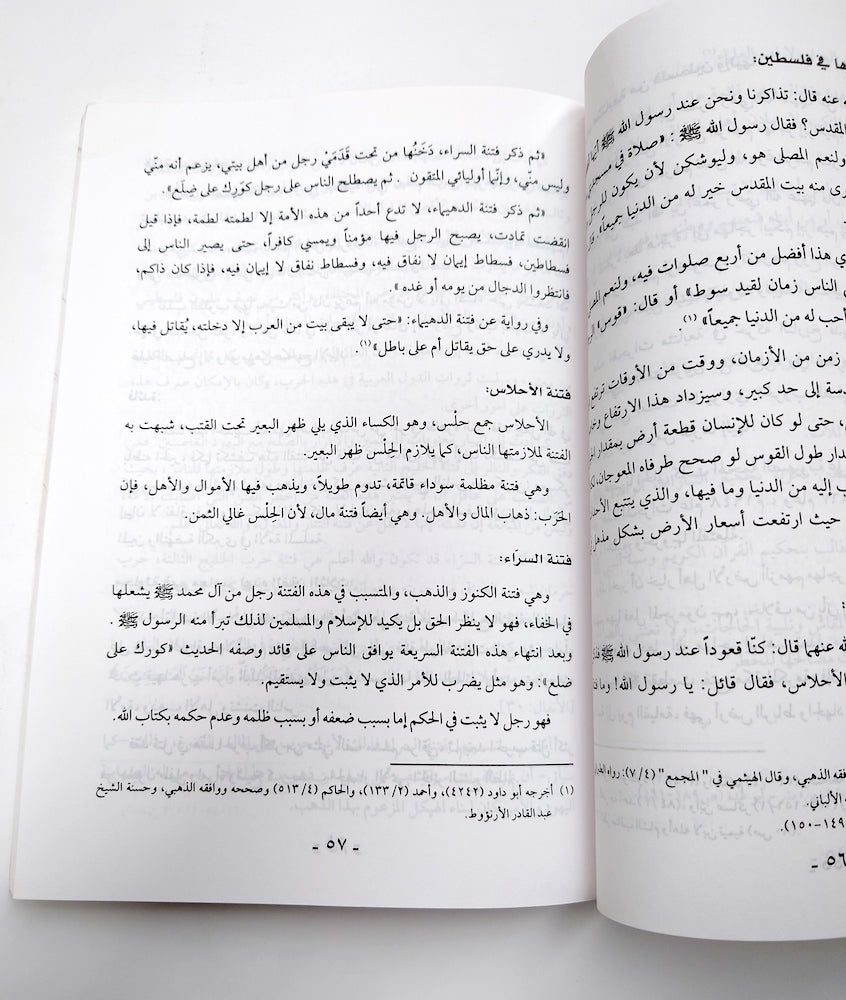 ها في فلسطين:
ه عنه قال: تذاكرنا ونحن عند رسول الله ﷺ أيهما
المقدس؟ فقال رسول الله ﷺ : «صلاة في مسجدي
ولنعم المصلى هو، وليوشكن لأن يكون للرجل
رى منه بيت المقدس خير له من الدنيا جميعاً» قال
ي هذا أفضل من أربع صلوات فيه، ولنعم المصلى
الناس زمان لقيد سوط» أو قال: «قوس» الر
أحب له من الدنيا جميعاً» (١)
زمن من الأزمان، ووقت من الأوقات ترتفع
دسة إلى حد كبير، وسيزداد هذا الارتفاع
، حتى لو كان للإنسان قطعة أرض بمقدار
دار طول القوس لو صحح طرفاه المعوجان،
ب إليه من الدنيا وما فيها، والذي يتتبع الأحد
حيث ارتفعت أسعار الأرض بشكل مذهل
الله عنهما قال: كنّا قعوداً عند رسول الله ﷺ
الأحلاس، فقال قائل: يا رسول الله! وما
فقه الذهبي، وقال الهيثمي في " المجمع" (٧/٤): رواه
ه الألباني.
١٤٩-١٥٠).
٥٦ -
«ثم ذكر فتنة السراء، دَخَنُها من تحت قَدَمَيْ رجل من أهل بيتي، يزعم أنه منّي
وليس منّي، وإنّما أوليائي المتقون . ثم يصطلح الناس على رجل كَوَرِك على ضِلَع».
«ثم ذكر فتنة الدهيماء، لا تدع أحداً من هذه الأمة إلا لطمته لطمة، فإذا قيل
انقضت تمادت، يصبح الرجل فيها مؤمناً ويمسي كافراً، حتى يصير الناس إلى
فسطاطين، فسطاط إيمان لا نفاق فيه، وفسطاط نفاق لا إيمان فيه، فإذا كان ذاكم،
فانتظروا الدجال من يومه أو غده» .
وفي رواية عن فتنة الدهيماء: «حتى لا يبقى بيت من العرب إلا دخلته، يُقاتل فيها،
ولا يدري على حق يقاتل أم على باطل»(١).
فتنة الأحلاس:
الأحلاس جمع حلْس، وهو الكساء الذي يلي ظهر البعير تحت القتب، شبهت به
الفتنة لملازمتها الناس، كما يلازم الحِلْس ظهر البعير.
وهي فتنة مظلمة سوداء قاتمة، تدوم طويلاً، ويذهب فيها الأموال والأهل، فإن
الحَرَب: ذهاب المال والأهل. وهي أيضاً فتنة مال، لأن الحِلْس غالي الثمن.
فتنة السرّاء:
وهي فتنة الكنوز والذهب، والمتسبب في هذه الفتنة رجل من آل محمد ﷺ يشعلها
في الخفاء، فهو لا ينظر الحق بل يكيد للإسلام والمسلمين لذلك تبرأ منه الرسول ﷺ .
وبعد انتهاء هذه الفتنة السريعة يوافق الناس على قائد وصفه الحديث «كورك على
ضلع»: وهو مثل يضرب للأمر الذي لا يثبت ولا يستقيم.
فهو رجل لا يثبت في الحكم إما بسبب ضعفه أو بسبب ظلمه وعدم حكمه بكتاب الله.
(١) أخرجه أبو داود (٤٢٤٢)، وأحمد (٢/ ١٣٣)، والحاكم (٤/ ٥١٣) وصححه ووافقه الذهبي، وحسنة الشيخ
عبد القادر الأرنؤوط.
- ٥٧ -